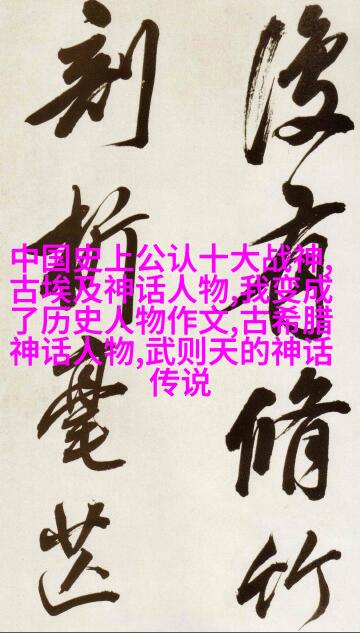 中国史上公认十大战神,
古埃及神话人物,我变成
了历史人物作文,古希腊
神话人物,武则天的神话
传说
後有脩竹
刻析毫